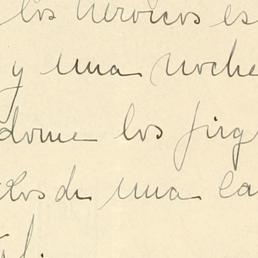 los heroicos es
y una noche
dome los
los de una ca